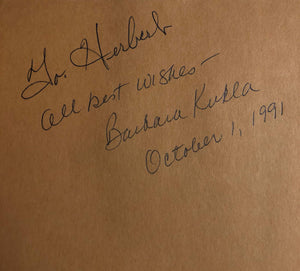 To Herbert
all best wishes -
Barbara Kukla
October 1, 1991